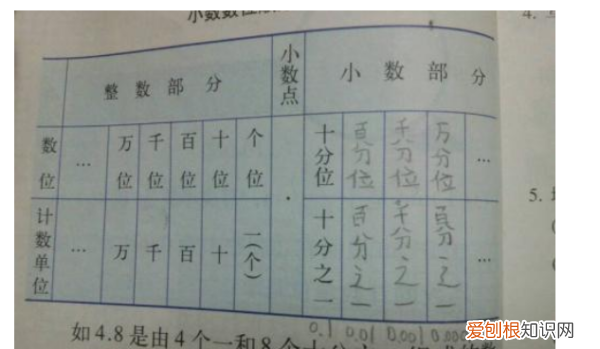 小数数位
4.
整数部分 小数点 小数部分
数位 … 万位 千位 百位 十位 个位 · 十分位 百分位 千分位 万分位 …
5.
计数单位 … 万 千 百 十 一(个) 十分之一 百分之一 千分之一 分之一 …
0.1 0.01 0.001 0.000
如4.8是由4个一和8个十分之一
爱刨根知识网